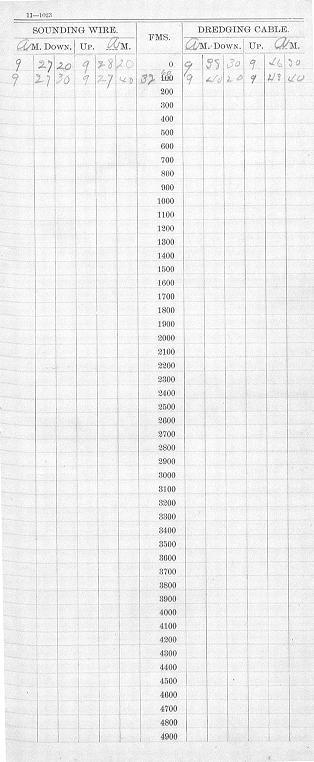 11—1023
SOUNDING WIRE. FMS. DREDGING CABLE.
A M. DOWN. UP. A M. A M. DOWN. UP. A M.
9 27 20 9 28 20 0 9 39 30 9 46 30
9 27 30 9 27 40 32 100 9 40 20 9 43 40
200
300
400
500
600
700
800
900
1000
1100
1200
1300
1400
1500
1600
1700
1800
1900
2000
2100
2200
2300
2400
2500
2600
2700
2800
2900
3000
3100
3200
3300
3400
3500
3600
3700
3800
3900
4000
4100
4200
4300
4400
4500
4600
4700
4800
4900